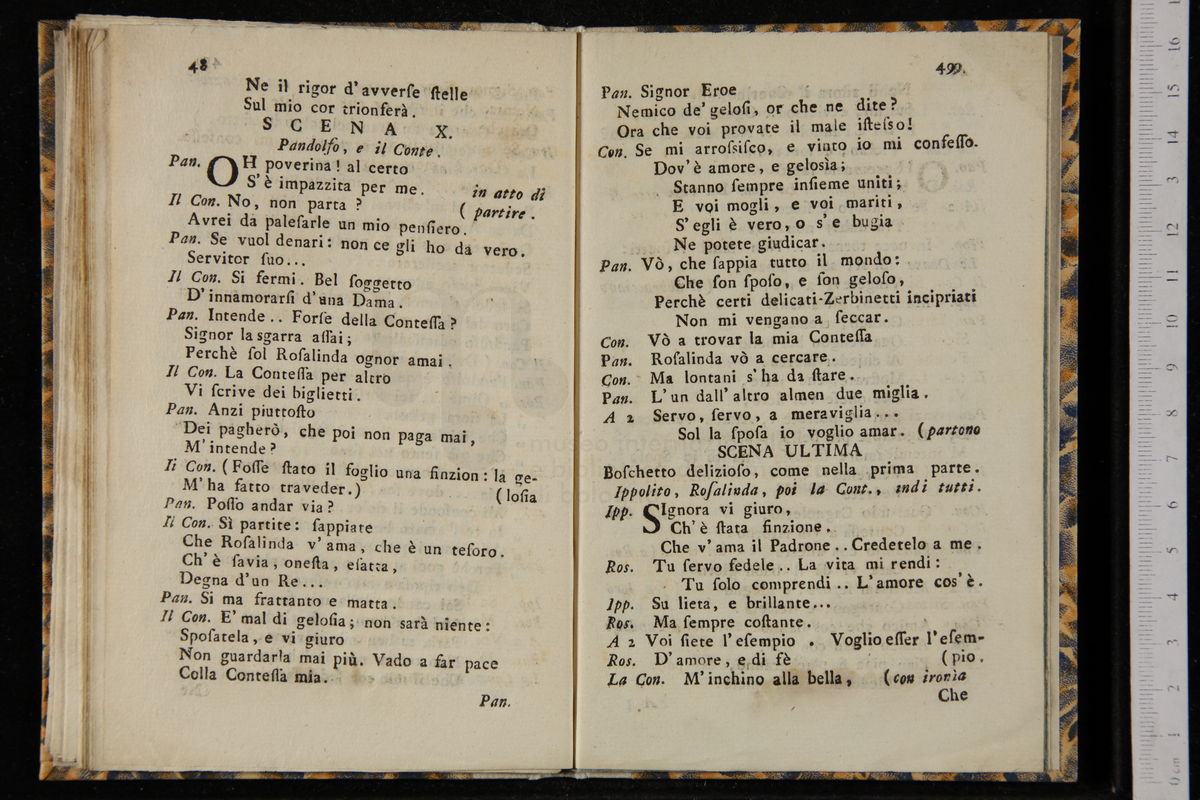 48
Ne il rigor d'avverſe ſtelle
Sul mio cor trionferà.
SCENA X.
Pandolfo, e il Conte.
Pan. OH poverina! al certo
S'è impazzita per me. in atto di
Il Con. No, non parta? ( partire.
Avrei da paleſarle un mio penſiero.
Pan. Se vuol denari: non ce gli ho da vero.
Servitor ſuo...
Il Con. Si fermi. Bel ſoggetto
D'innamorarſi d'una Dama.
Pan. Intende.. Forſe della Conteſſa?
Signor la sgarra aſſai;
Perchè ſol Roſalinda ognor amai.
Il Con. La Conteſſa per altro
Vi ſcrive dei biglietti.
Pan. Anzi piuttoſto
Dei pagherò, che poi non paga mai,
M'intende?
Il Con. (Foſſe ſtato il foglio una finzion: la ge-
M'ha fatto traveder.) (loſia
Pan. Poſſo andar via?
Il Con. Sì partite: ſappiate
Che Roſalinda v'ama, che è un teſoro.
Ch'è ſavia, oneſta, eſatta,
Degna d'un Re...
Pan. Si ma frattanto e matta.
Il Con. E' mal di geloſia; non sarà niente:
Spoſatela, e vi giuro
Non guardarla mai più. Vado a far pace
Colla Conteſſa mia.
Pan.
499.
Pan. Signor Eroe
Nemico de' geloſi, or che ne dite?
Ora che voi provate il male iſteſso!
Con. Se mi arroſsiſco, e vinto io mi confeſſo.
Dov'è amore, e gelosìa;
Stanno ſempre inſieme uniti;
E voi mogli, e voi mariti,
S'egli è vero, o s'e bugia
Ne potete giudicar.
Pan. Vò, che ſappia tutto il mondo:
Che ſon ſpoſo, e ſon geloſo,
Perchè certi delicati-Zerbinetti incipriati
Non mi vengano a ſeccar.
Con. Vò a trovar la mia Conteſſa
Pan. Roſalinda vò a cercare.
Con. Ma lontani s'ha da ſtare.
Pan. L'un dall'altro almen due miglia.
A 2 Servo, ſervo, a meraviglia...
Sol la ſpoſa io voglio amar. (partono
SCENA ULTIMA
Boſchetto delizioſo, come nella prima parte.
Ippolito, Roſalinda, poi la Cont., indi tutti.
Ipp. SIgnora vi giuro,
Ch'è ſtata finzione.
Che v'ama il Padrone.. Credetelo a me.
Ros. Tu ſervo fedele.. La vita mi rendi:
Tu ſolo comprendi.. L'amore cos'è.
Ipp. Su lieta, e brillante...
Ros. Ma ſempre coſtante.
A 2 Voi ſiete l'eſempio . Voglio eſſer l'eſem-
Ros. D'amore, e di fè (pio.
La Con. M'inchino alla bella, (con ironìa
Che